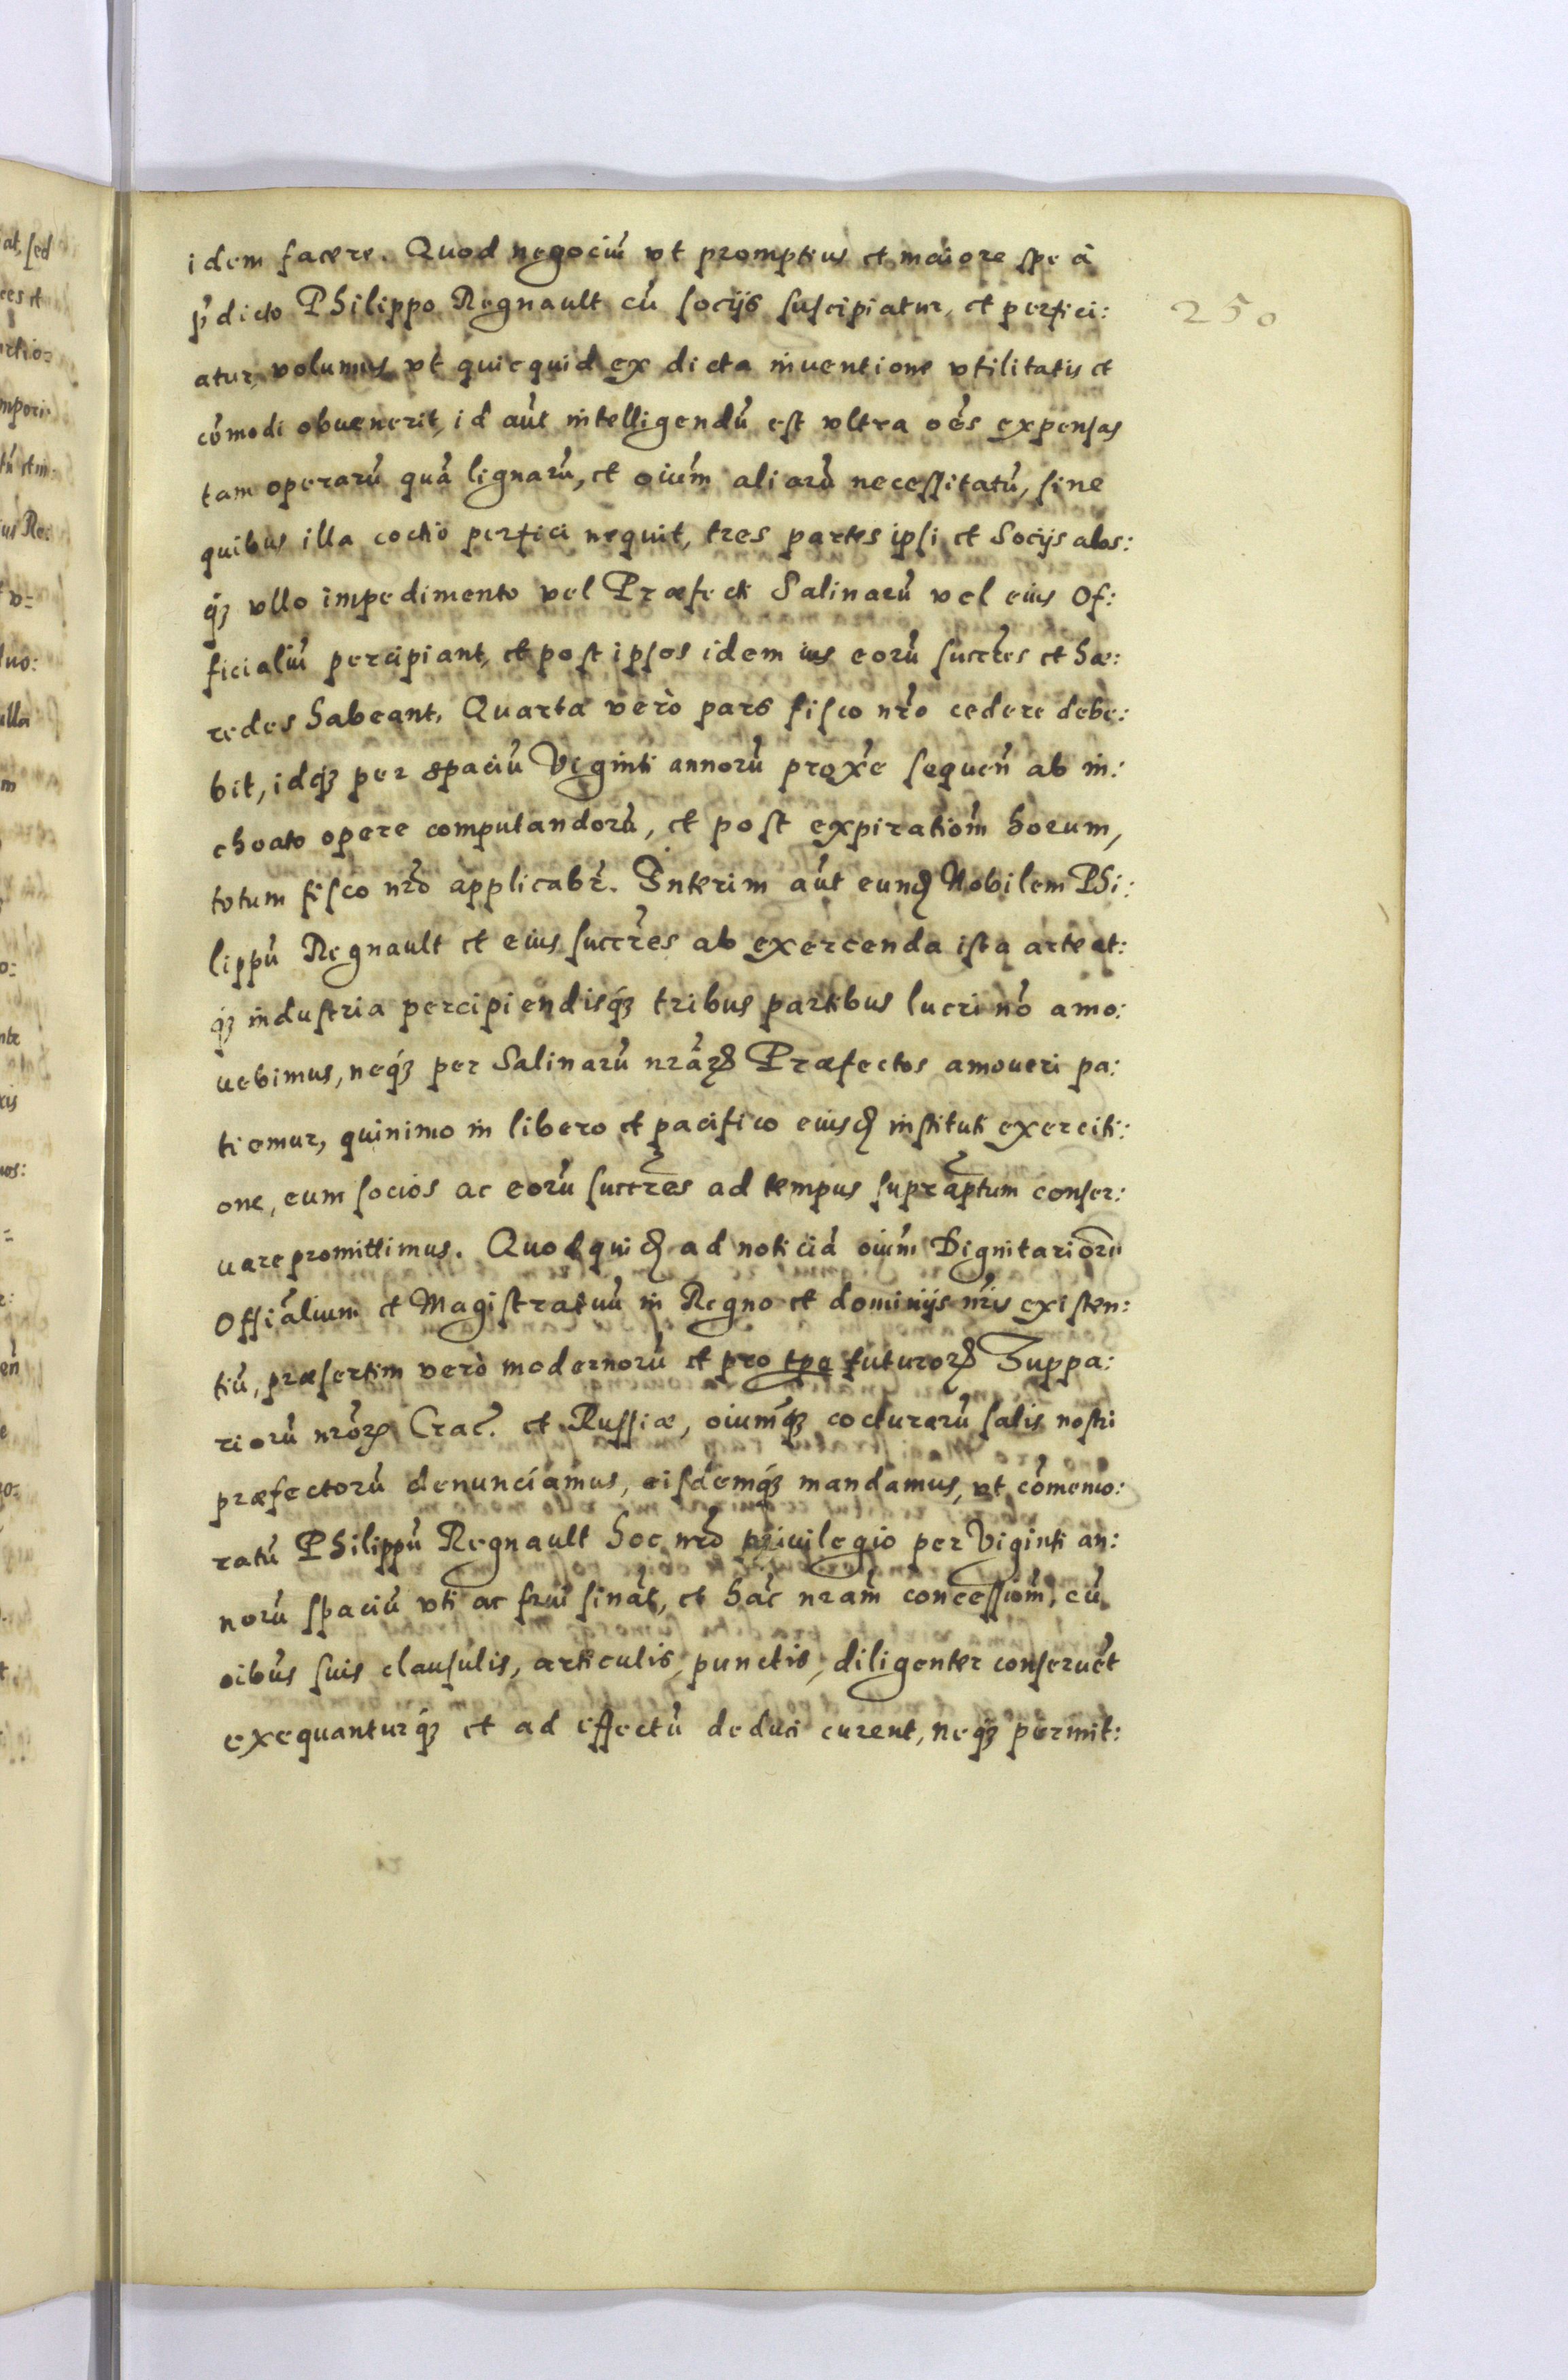 idem facere. Quod negociū vt promptius et maiore spe à
p̄dicto Philippo Regnault cū socijs suscipiatur, et perfici:
250
atur, volumus vt quicquid ex dicta inuentione vtilitatis et
cōmodi obuenerit, id aūt intelligendū est vltra oēs expensas
tam operarū quā lignarū, et oium̄ aliarū necessitatū, sine
quibus illa coctio perfici nequit, tres partes ipsi et Socijs abs:
qꝫ vllo impedimento vel Præfecti Salinarū vel eius Of:
ficialiū percipiant, et post ipsos idem ius eorū succr̄es et hæ:
redes habeant. Quarta verò pars fisco nr̄o cedere debe:
bit, idqꝫ per spaciū Viginti annorū prox̄e sequen̄ ab in:
choato opere computandorū, et post expiratiom̄ horum,
totum fisco nr̄o applicabr̄. Interim aūt eund̄ Nobilem Phi:
lippū Regnault et eius succr̄es ab exercenda ista arte at:
qꝫ industria percipiendisqꝫ tribus partibus lucri nō amo:
uebimus, neqꝫ per Salinarū nr̄arꝝ Præfectos amoueri pa:
tiemur, quinimo in libero et pacifico eiusd̄ instituti exerciti:
one, eum socios ac eorū succr̄es ad tempus supraptum conser:
uare promittimus. Quod quid̄ ad noticiā oium̄ Dignitariorū
Offiālium et Magistratuū in Regno et dominijs nr̄is existen:
tiū, præsertim verò modernorū et pro tpe futurorꝝ Zuppa:
riorū nr̄orꝝ Crac̄. et Russiæ, oium̄qꝫ cocturarū salis nostri
præfectorū denunciamus, eisdemqꝫ mandamus, vt cōmemo:
ratū Philippū Regnault hoc nr̄o priuilegio per Viginti an:
norū spaciū vti ac frui sināt, et hāc nram̄ concessiom̄, cū
oibūs suis clausulis, articulis, punctis, diligenter conseruēt
exequanturqꝫ et ad effectū deduci curent, neqꝫ permit: